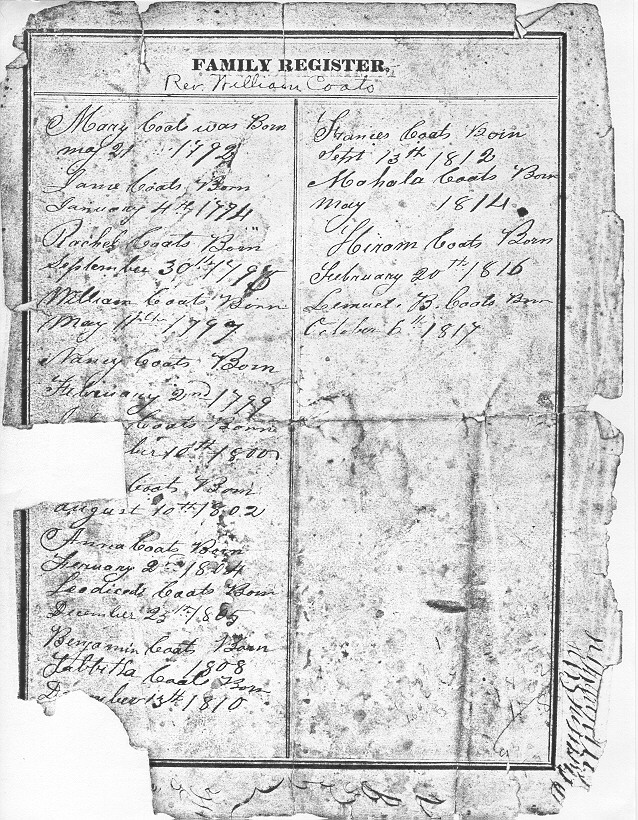 FAMILY REGISTER.
Rev. William Coats
Mary Coats was Born
may 21 1792
Jame Coats Born
January 4th 1774
Rachel Coats Born
September 30th 1795
William Coats Born
May 11th 1797
Nancy Coats Born
February 2nd 1799
Coats Bornn
ber 10th 1800
Coats Born
august 10th 1802
Anna Coats Born
Feruary 2nd 1804
Leodiceds Coats Born
December 25th 1805
Benjamin Coats Born
1808
Tabbitha Coats Born
D mber 13th 1810
Frances Coats Born
Sept 13th 1812
Mahala Coats Born
may 1814
Hiram Coats Born
February 20th 1816
Lemuel. B. Coats Born
October 6th 1817